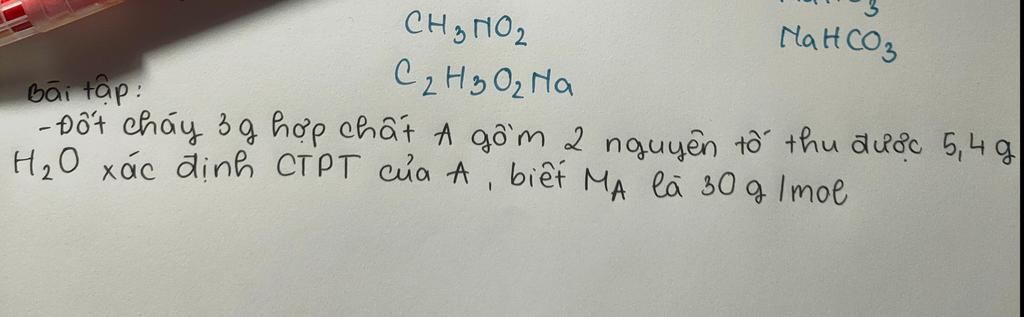 CH3NO2
NaHCO3
C2H3O2Na
Bài tập:
-Đốt cháy 3g hợp chất A gồm 2 nguyên tố thu được 5,4g
H2O xác định CTPT của A, biết MA là 30g/mol